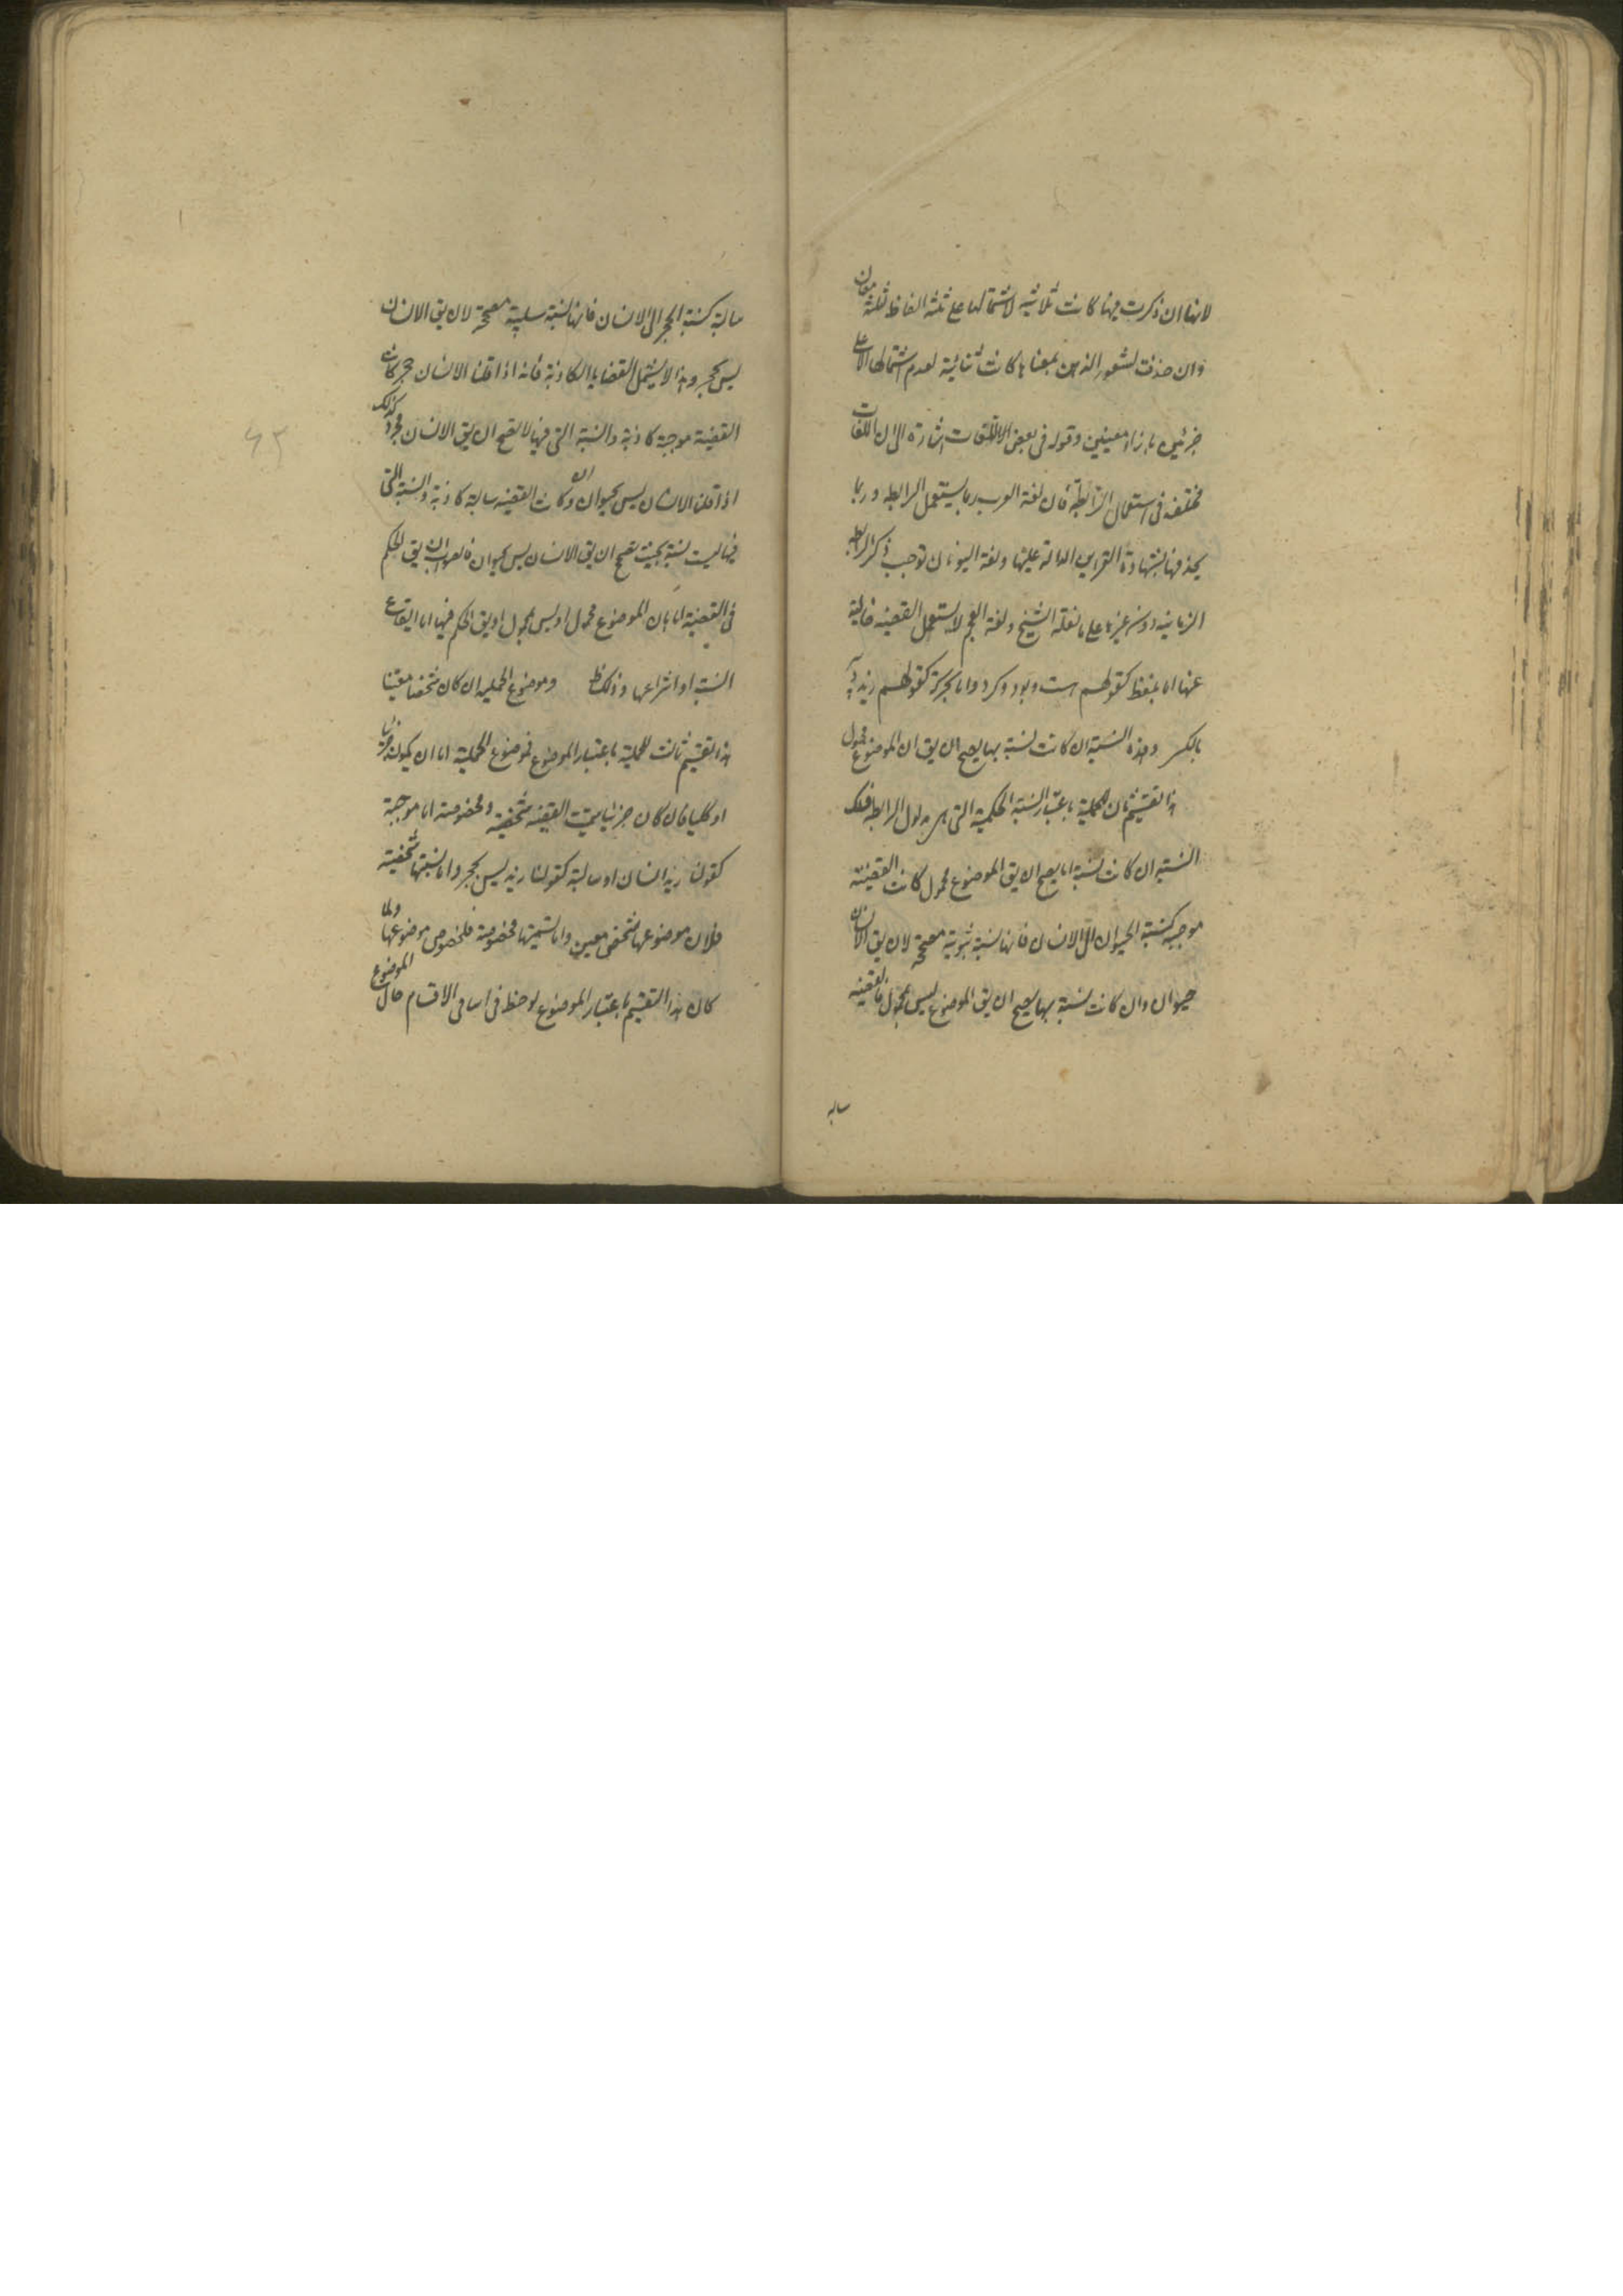 لانها ان ذكرت فيها كانت ثلاثية لاشتمالها على ثلثة الفاظ لثلثة معان
وان حذفت لشعور الذهن بمعناها كانت ثنائية لعدم اشتمالها الا على
جزئين بازاء معينين وقوله فى بعض اللغات اشارة الى ان اللغات
مختلفة فى استعمال الرابطة فان لغة العرب ربما يستعمل الرابطة وربما
يحذفها بشهادة القراين الدالة عليها ولغة اليونان توجب ذكر الرابطة
الزمانية دون غيرها على ما نقله الشيخ ولغة العجم لا يستعمل القضية خالية
عنها اما بلفظ كقولهم است وبود وكرد واما بحركة كقولهم زيد دبير
بالكسر وهذه النسبة ان كانت نسبة بها يصح ان يق ان الموضوع محمول
هذا تقسيم ثان للحملية باعتبار النسبة الحكمية التى هى مدلول الرابطة فتلك
النسبة ان كانت نسبة بها يصح ان يق الموضوع محمول كانت القضية
موجبة كنسبة الحيوان الى الانسان فانها نسبة ثبوتية مصححة لان يق الانسان
حيوان وان كانت نسبة بها يصح ان يق الموضوع ليس بمحمول فالقضية
سالبة
سالبة كنسبة الحجر الى الانسان فانها نسبة سلبية مصححة لان يق الانسان
ليس بحجر وهذا لا يشتمل القضايا الكاذبة فانه اذا قلنا الانسان حجر كانت
القضية موجبة كاذبة والنسبة التى فيها لا تصح ان يق الانسان حجر وكذلك
اذا قلنا الانسان ليس بحيوان كانت القضية سالبة كاذبة والنسبة التى
فيها ليست نسبة بحيث تصح ان يق الانسان ليس بحيوان فالصواب ان يق الحكم
فى القضية اما بان الموضوع محمول او ليس بمحمول او يق الحكم فيها اما ايقاع
النسبة او انتزاعها وذلك ظ وموضوع الحملية ان كان شخصا معينا
هذا تقسيم ثالث للحملية باعتبار الموضوع فموضوع الحملية اما ان يكون جزئيا
او كليا فان كان جزئيا سميت القضية شخصية ومخصوصة اما موجبة
كقولنا زيد انسان او سالبة كقولنا زيد ليس بحجر واما تسميتها شخصية
فلان موضوعها شخص معين واما تسميتها مخصوصة فلخصوص موضوعها ولما
كان هذا التقسيم باعتبار الموضوع لوحظ فى اسامى الاقسام حال الموضوع